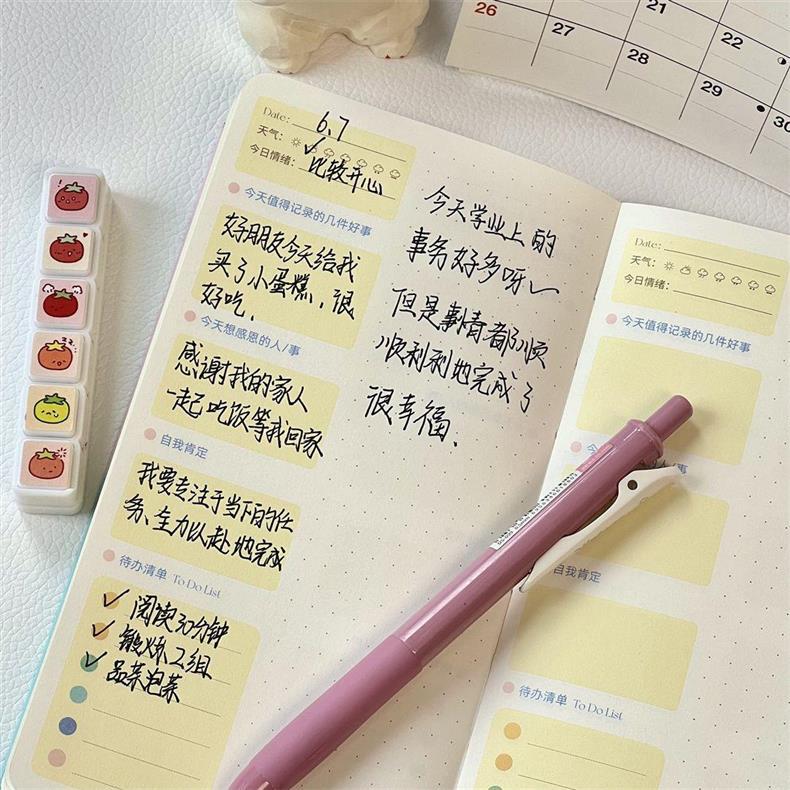 26
27
21
28
22
29
30
Date: 6.7
天气:
今日情绪: 比较开心
今天值得记录的几件好事
好朋友今天给我
买了小蛋糕,很
好吃.
今天想感恩的人/事
感谢我的家人
一起吃饭等我回家
自我肯定
我要专注于当下的任
务、全力以赴地完成
待办清单 To Do List
阅读30分钟
锻炼2组
品茶泡茶
今天学业上的
事务好多呀
但是事情都顺
顺利利地完成了
很幸福、
Date:
天气:
今日情绪:
今天值得记录的几件好事
今
事
自我肯定
待办清单 To Do List